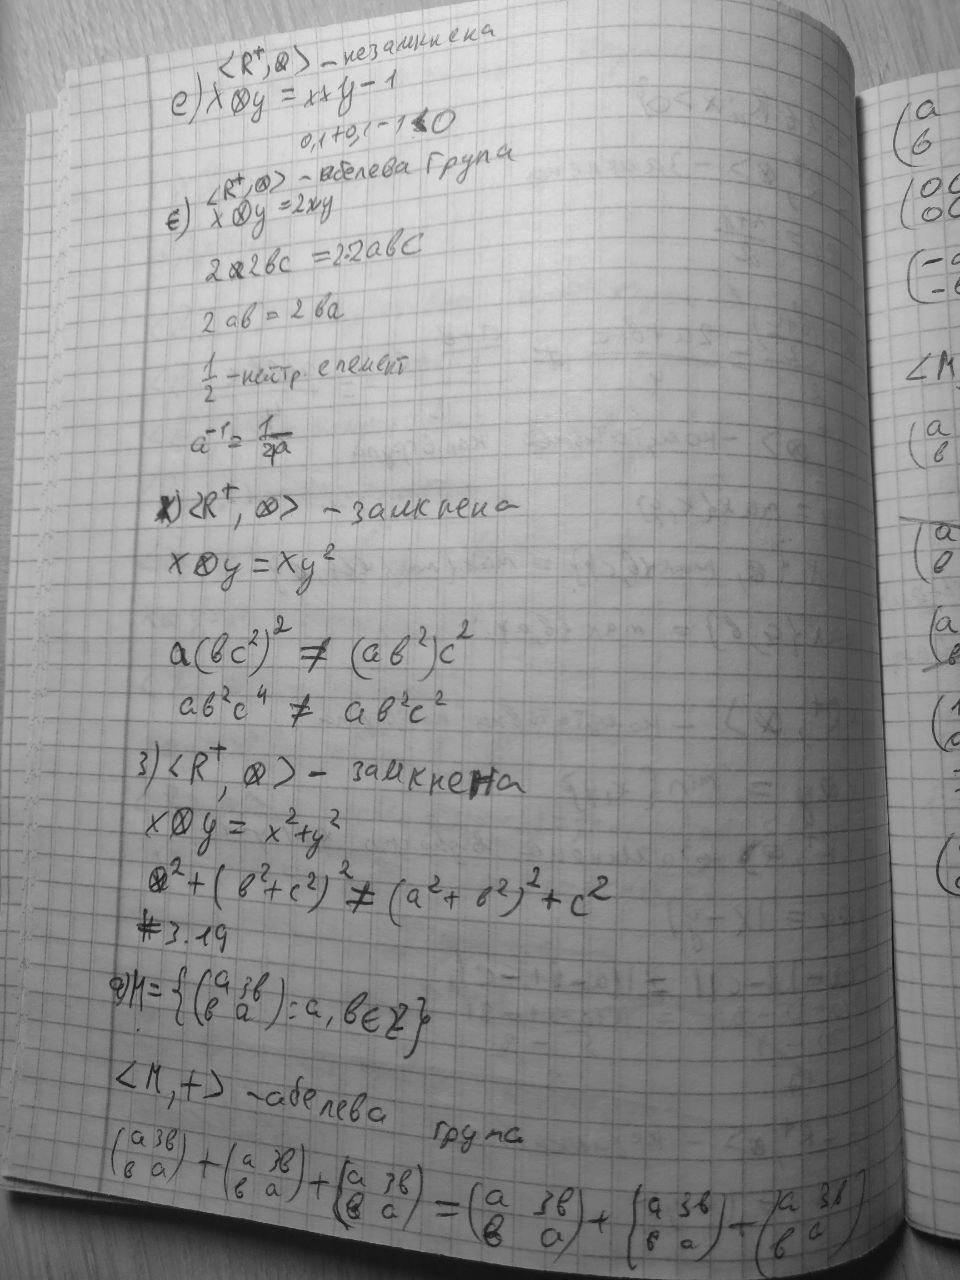 <R⁺, ⊗> – незамкнена
е) x⊗y = x+y-1
0,1+0,1-1<0
<R⁺, ⊗> – абелева група
є) x⊗y = 2xy
2a2bc = 2·2abc
2ab = 2ba
1/2 – нейтр. елемент
a⁻¹ =
ж) <R⁺, ⊗> – замкнена
x⊗y = xy²
a(bc²)² ≠ (ab²)c²
ab²c⁴ ≠ ab²c²
з) <R⁺, ⊗> – замкнена
x⊗y = x²+y²
a²+(b²+c²)² ≠ (a²+b²)²+c²
# 3.19
а) M = {(a 3b
b a) : a, b ∈ Z}
<M, +> – абелева група
(a 3b) + (a 3b) + (a 3b) = (a 3b) + (a 3b) + (a 3b)
(b a) (b a) (b a) (b a) (b a) (b a)
(a
b
(00
00
(-a
<M,
(a
b
(a
b
(a
b
(1